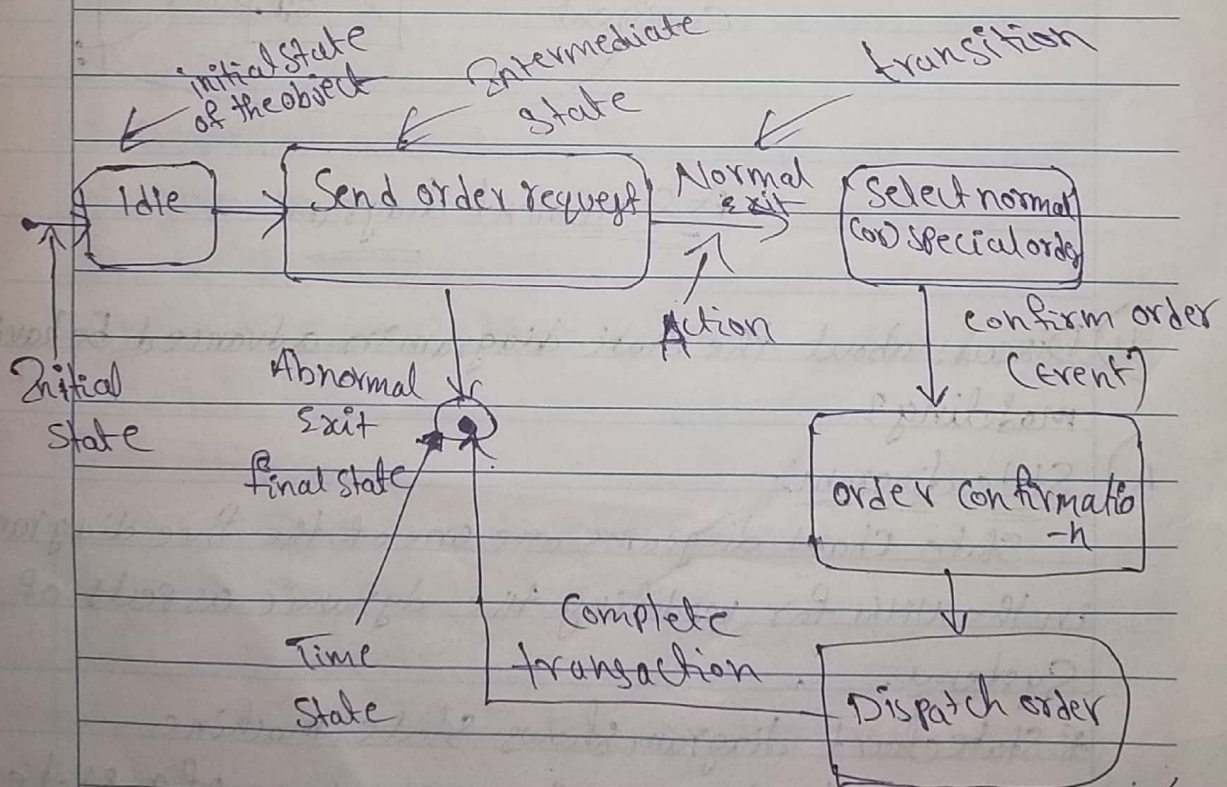 initial state
of the object
Intermediate
state
transition
Idle
Send order request
Normal
Exit
Select normal
(or) special order
Action
confirm order
(Event)
Initial
state
Abnormal
Exit
final state
order confirmatio
-n
Time
State
Complete
transaction
Dispatch order